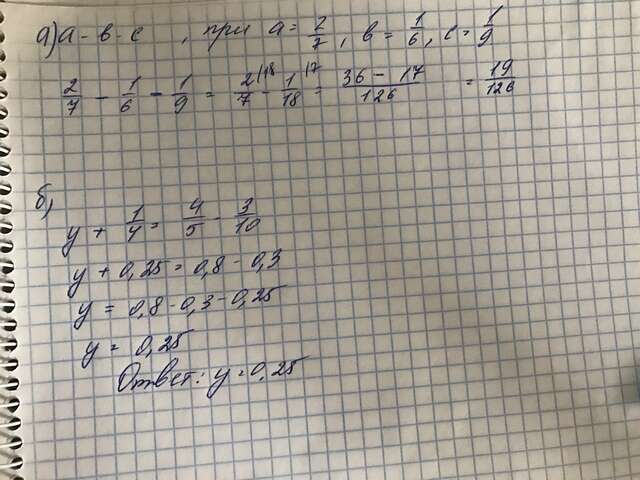 а) а - в - с , при а = 2/7, в = 1/6, с = 1/9
2/7 - 1/6 - 1/9 = 2/7 (18 - 1/18 (7 = 36 - 17/126 = 19/126
б)
y + 1/4 = 4/5 - 3/10
y + 0,25 = 0,8 - 0,3
y = 0,8 - 0,3 - 0,25
y = 0,25
Ответ: y = 0,25